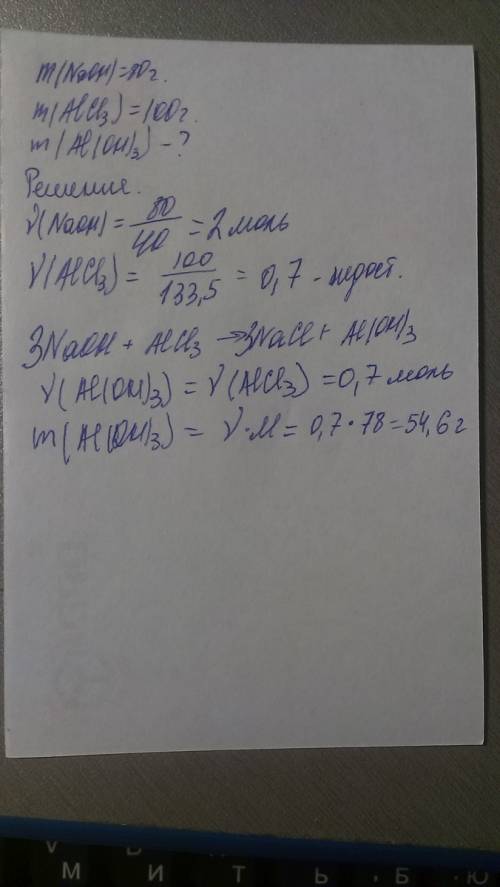 m(NaOH)=80г.
m(AlCl₃)=100г.
m(Al(OH)₃) - ?
Решение.
ν(NaOH)= 80/40 = 2 моль
ν(AlCl₃)= 100/133,5 = 0,7 - недост.
3NaOH + AlCl₃ → 3NaCl + Al(OH)₃
ν(Al(OH)₃) = ν(AlCl₃) = 0,7 моль
m(Al(OH)₃) = ν·M = 0,7·78 = 54,6 г
М И Т Ь Б Ю